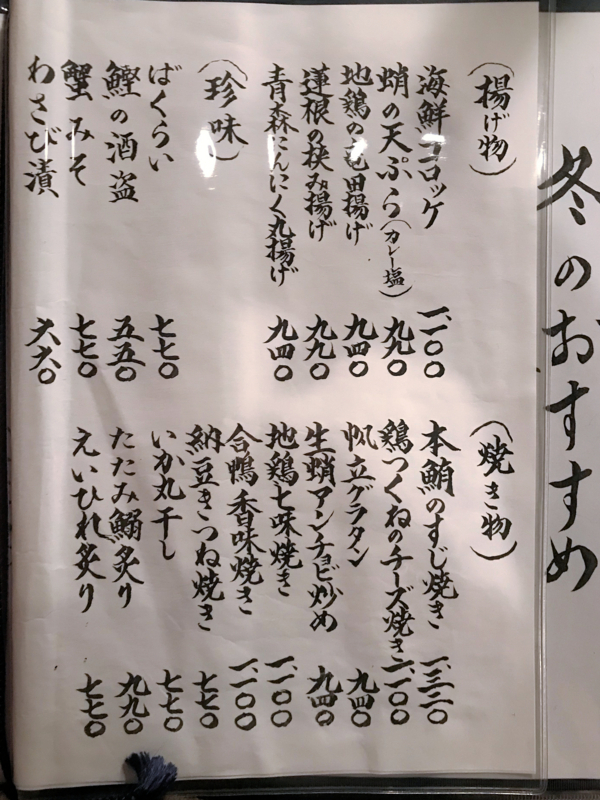 冬のおすすめ
(揚げ物)
海鮮コロッケ 一、一〇〇
蛸の天ぷら(カレー塩) 九九〇
地鶏の竜田揚げ 九四〇
蓮根の挟み揚げ 九九〇
青森にんにく丸揚げ 九四〇
(珍味)
ばくらい 七七〇
鰹の酒盗 五五〇
蟹みそ 七七〇
わさび漬 六六〇
(焼き物)
本鮪のすじ焼き 一、三二〇
鶏つくねのチーズ焼き 一、一〇〇
帆立グラタン 九四〇
生蛸アンチョビ炒め 九四〇
地鶏七味焼き 一、一〇〇
合鴨香味焼き 一、一〇〇
納豆きつね焼き 七七〇
いか丸干し 七七〇
たたみ鰯炙り 九九〇
えいひれ炙り 七七〇